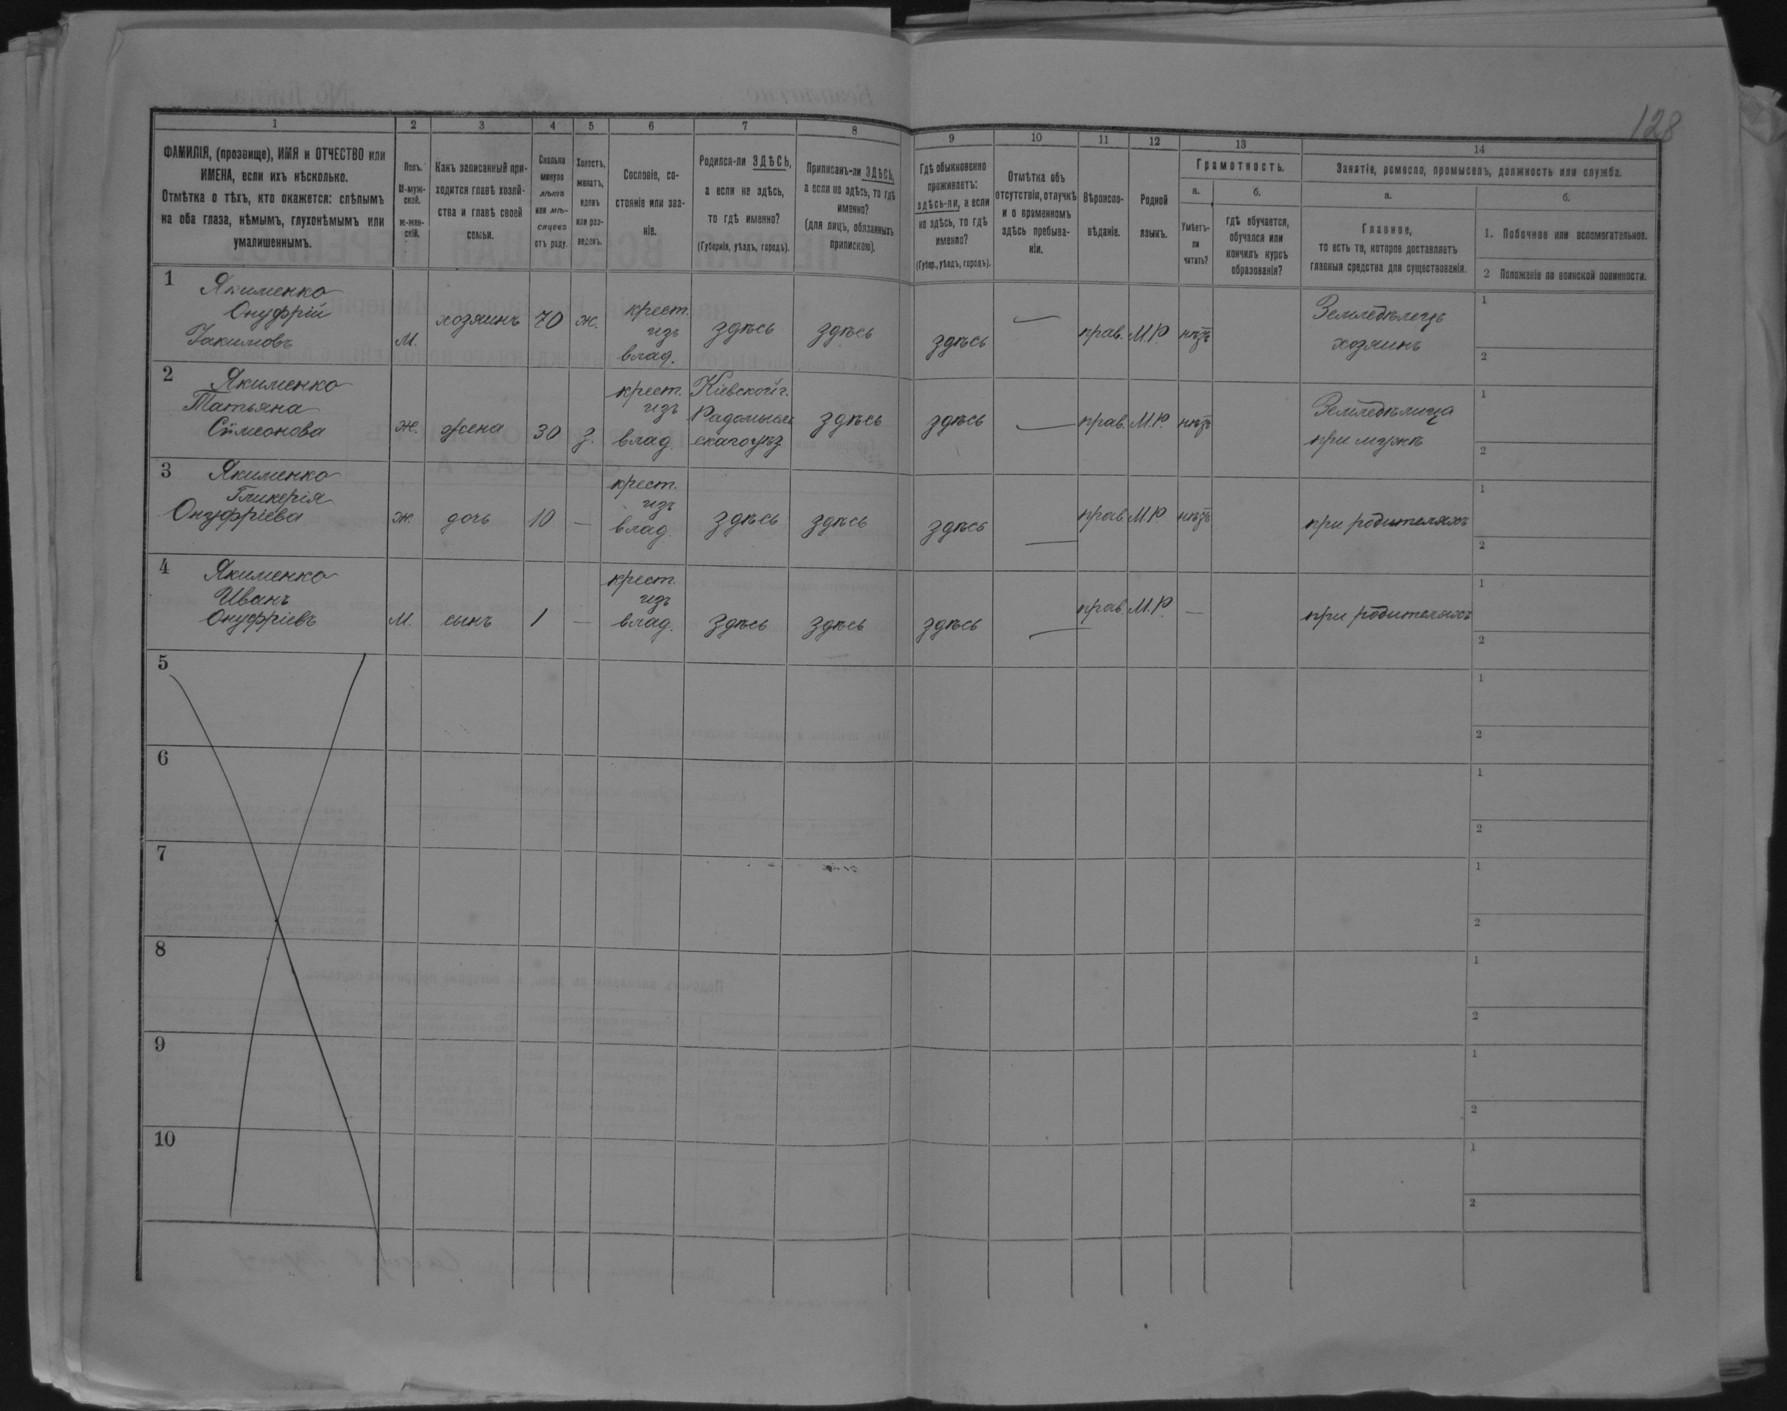 128
1 2 3 4 5 6 7 8 9 10 11 12 13 14
ФАМИЛІЯ, (прозвище), ИМЯ и ОТЧЕСТВО или
ИМЕНА, если ихъ нѣсколько.
Отмѣтка о тѣхъ, кто окажется: слѣпымъ
на оба глаза, нѣмымъ, глухонѣмымъ или
умалишеннымъ.
Полъ.
М-муж-
ской.
ж-жен-
скій.
Какъ записанный при-
ходится главѣ хозяй-
ства и главѣ своей
семьи.
Сколько
минуло
лѣтъ
или мѣ-
сяцевъ
отъ роду.
Холостъ,
женатъ,
вдовъ
или раз-
веденъ.
Сословіе, со-
стояніе или зва-
ніе.
Родился-ли ЗДѢСЬ,
а если не здѣсь,
то гдѣ именно?
(Губернія, уѣздъ, городъ).
Приписанъ-ли ЗДѢСЬ,
а если не здѣсь, то гдѣ
именно?
(для лицъ, обязанныхъ
припискою).
Гдѣ обыкновенно
проживаетъ:
здѣсь-ли, а если
не здѣсь, то гдѣ
именно?
(Губер., уѣздъ, городъ).
Отмѣтка объ
отсутствіи, отлучкѣ
и о временномъ
здѣсь пребыва-
ніи.
Вѣроиспо-
вѣданіе.
Родной
языкъ.
Грамотность.
а.
Умѣетъ-
ли
читать?
б.
гдѣ обучается,
обучался или
кончилъ курсъ
образованія?
Занятіе, ремесло, промыселъ, должность или служба.
а.
Главное,
то есть то, которое доставляетъ
главныя средства для существованія.
б.
1. Побочное или вспомогательное.
2 Положеніе по воинской повинности.
1 Якименко
Онуфрій
Іакимовъ
М. хозяинъ 70 ж.
крест.
изъ
влад.
здѣсь здѣсь здѣсь — прав. М.Р. нѣтъ
Земледѣлецъ
хозяинъ
1
2
2 Якименко
Татьяна
Симеонова
ж. жена 30 з.
крест.
изъ
влад.
Кіевской г.
Радомысль
скаго уѣз
здѣсь здѣсь — прав. М.Р. нѣтъ
Земледѣлица
при мужѣ
1
2
3 Якименко
Гликерія
Онуфріева
ж. дочь 10 —
крест.
изъ
влад.
здѣсь здѣсь здѣсь — прав. М.Р. нѣтъ
при родителяхъ
1
2
4 Якименко
Иванъ
Онуфріевъ
М. сынъ 1 —
крест.
изъ
влад.
здѣсь здѣсь здѣсь — прав. М.Р. —
при родителяхъ
1
2
5
1
2
6
1
2
7
1
2
8
1
2
9
1
2
10
1
2